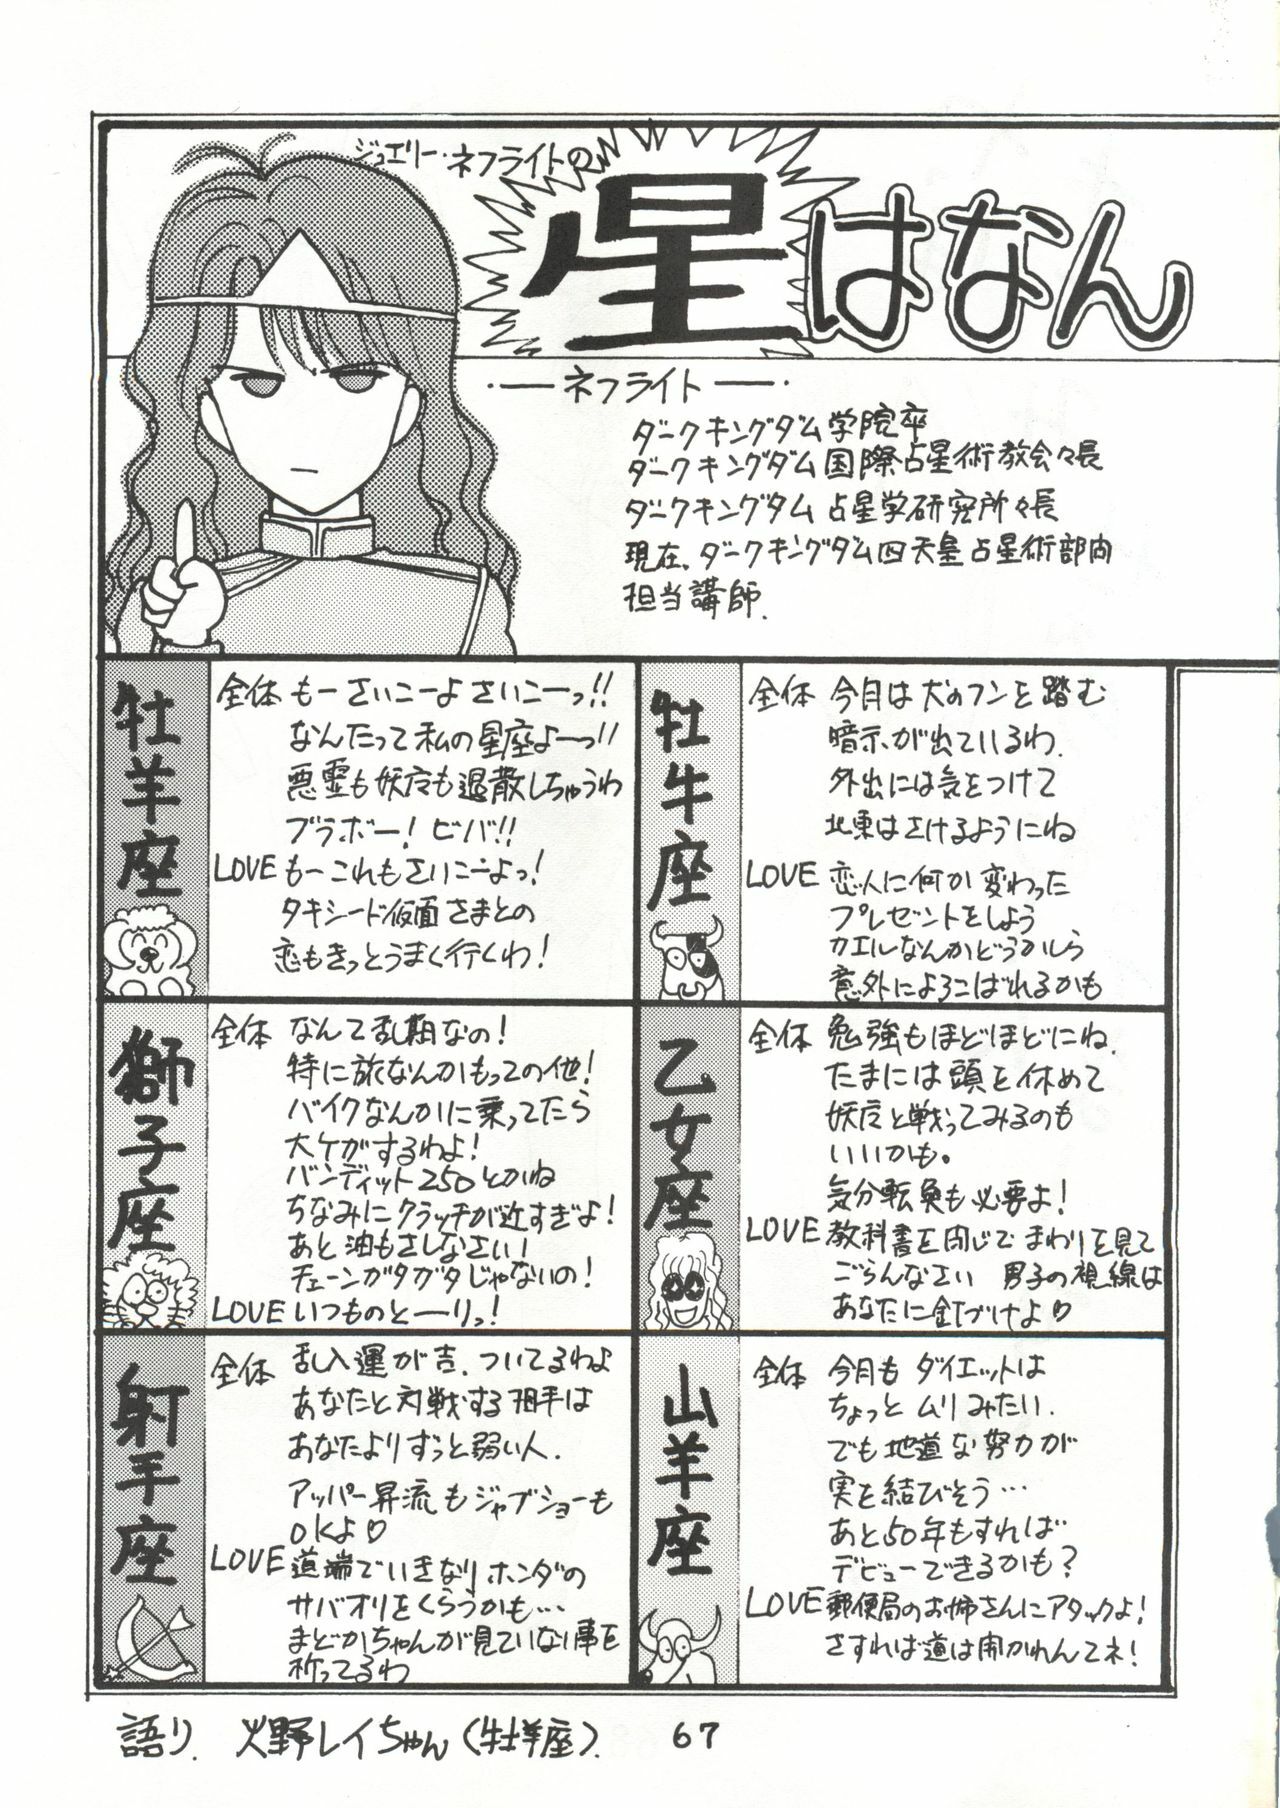 ジュエリー・ネフライトの
星はなん
・―ネフライト―・
ダークキングダム学院卒
ダークキングダム国際占星術教会々長
ダークキングダム占星学研究所々長
現在、ダークキングダム四天皇占星術部内
担当講師.
牡羊座
全体 もーさいこーよさいこーっ!!
なんたって私の星座よーっ!!
悪霊も妖魔も退散しちゃうわ
ブラボー!ビバ!!
LOVE もーこれもさいこーよっ!
タキシード仮面さまとの
恋もきっとうまく行くわ!
牡牛座
全体 今月は犬のフンを踏む
暗示が出ているわ.
外出には気をつけて
北東はさけるようにね
LOVE 恋人に何か変わった
プレゼントをしよう
カエルなんかどうかしら
意外によろこばれるかも
獅子座
全体 なんて乱期なの!
特に旅なんかもっての他!
バイクなんかに乗ってたら
大ケガするわよ!
バンディット250とかね
ちなみにクラッチが近すぎよ!
あと油もさしなさい!
チェーンガタガタじゃないの!
LOVE いつものとーりっ!
乙女座
全体 勉強もほどほどにね.
たまには頭を休めて
妖魔と戦ってみるのも
いいかも。
気分転換も必要よ!
LOVE 教科書を閉じてまわりを見て
ごらんなさい 男子の視線は
あなたに釘づけよ♡
射手座
全体 乱入運が吉.ついてるわよ
あなたと対戦する相手は
あなたよりずっと弱い人.
アッパー昇流もジャブショーも
OKよ♡
LOVE 道端でいきなりホンダの
サバオリをくらうかも…
まどかちゃんが見ていない事を
祈ってるわ
山羊座
全体 今月もダイエットは
ちょっとムリみたい.
でも地道な努力が
実を結びそう…
あと50年もすれば
デビューできるかも?
LOVE 郵便局のお姉さんにアタックよ!
さすれば道は開かれんてネ!
語り. 火野レイちゃん(牡羊座).
67